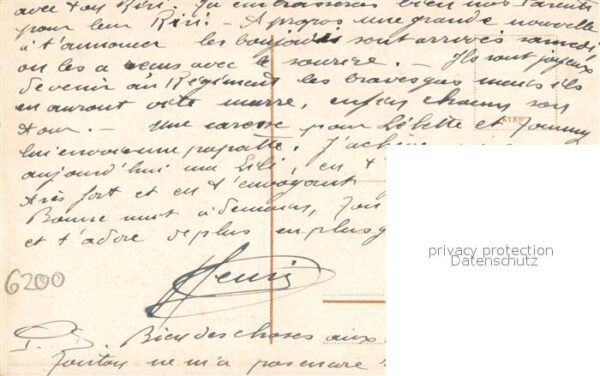 avec ton Riri. Tu embrasseras bien nos parents
pour leur Riri - A propos une grande nouvelle
à t'annoncer les sont arrivés samedi,
on les a venus avec le sourire. - Ils sont joyeux
de venir au Régiment les braves gas mais ils
en auront vite marre, enfin chacun son
tour. - Une caresse pour Bébette et
lui envoie une papatte. J'ach
aujourd'hui ma Lili, en t
très fort et en t'envoyant
Bonne nuit à demain, Ton
et t'adore de plus en plus
Henri
6200
P.S. Bien des choses aux
Tonton ne m'a pas encore
privacy protection
Datenschutz